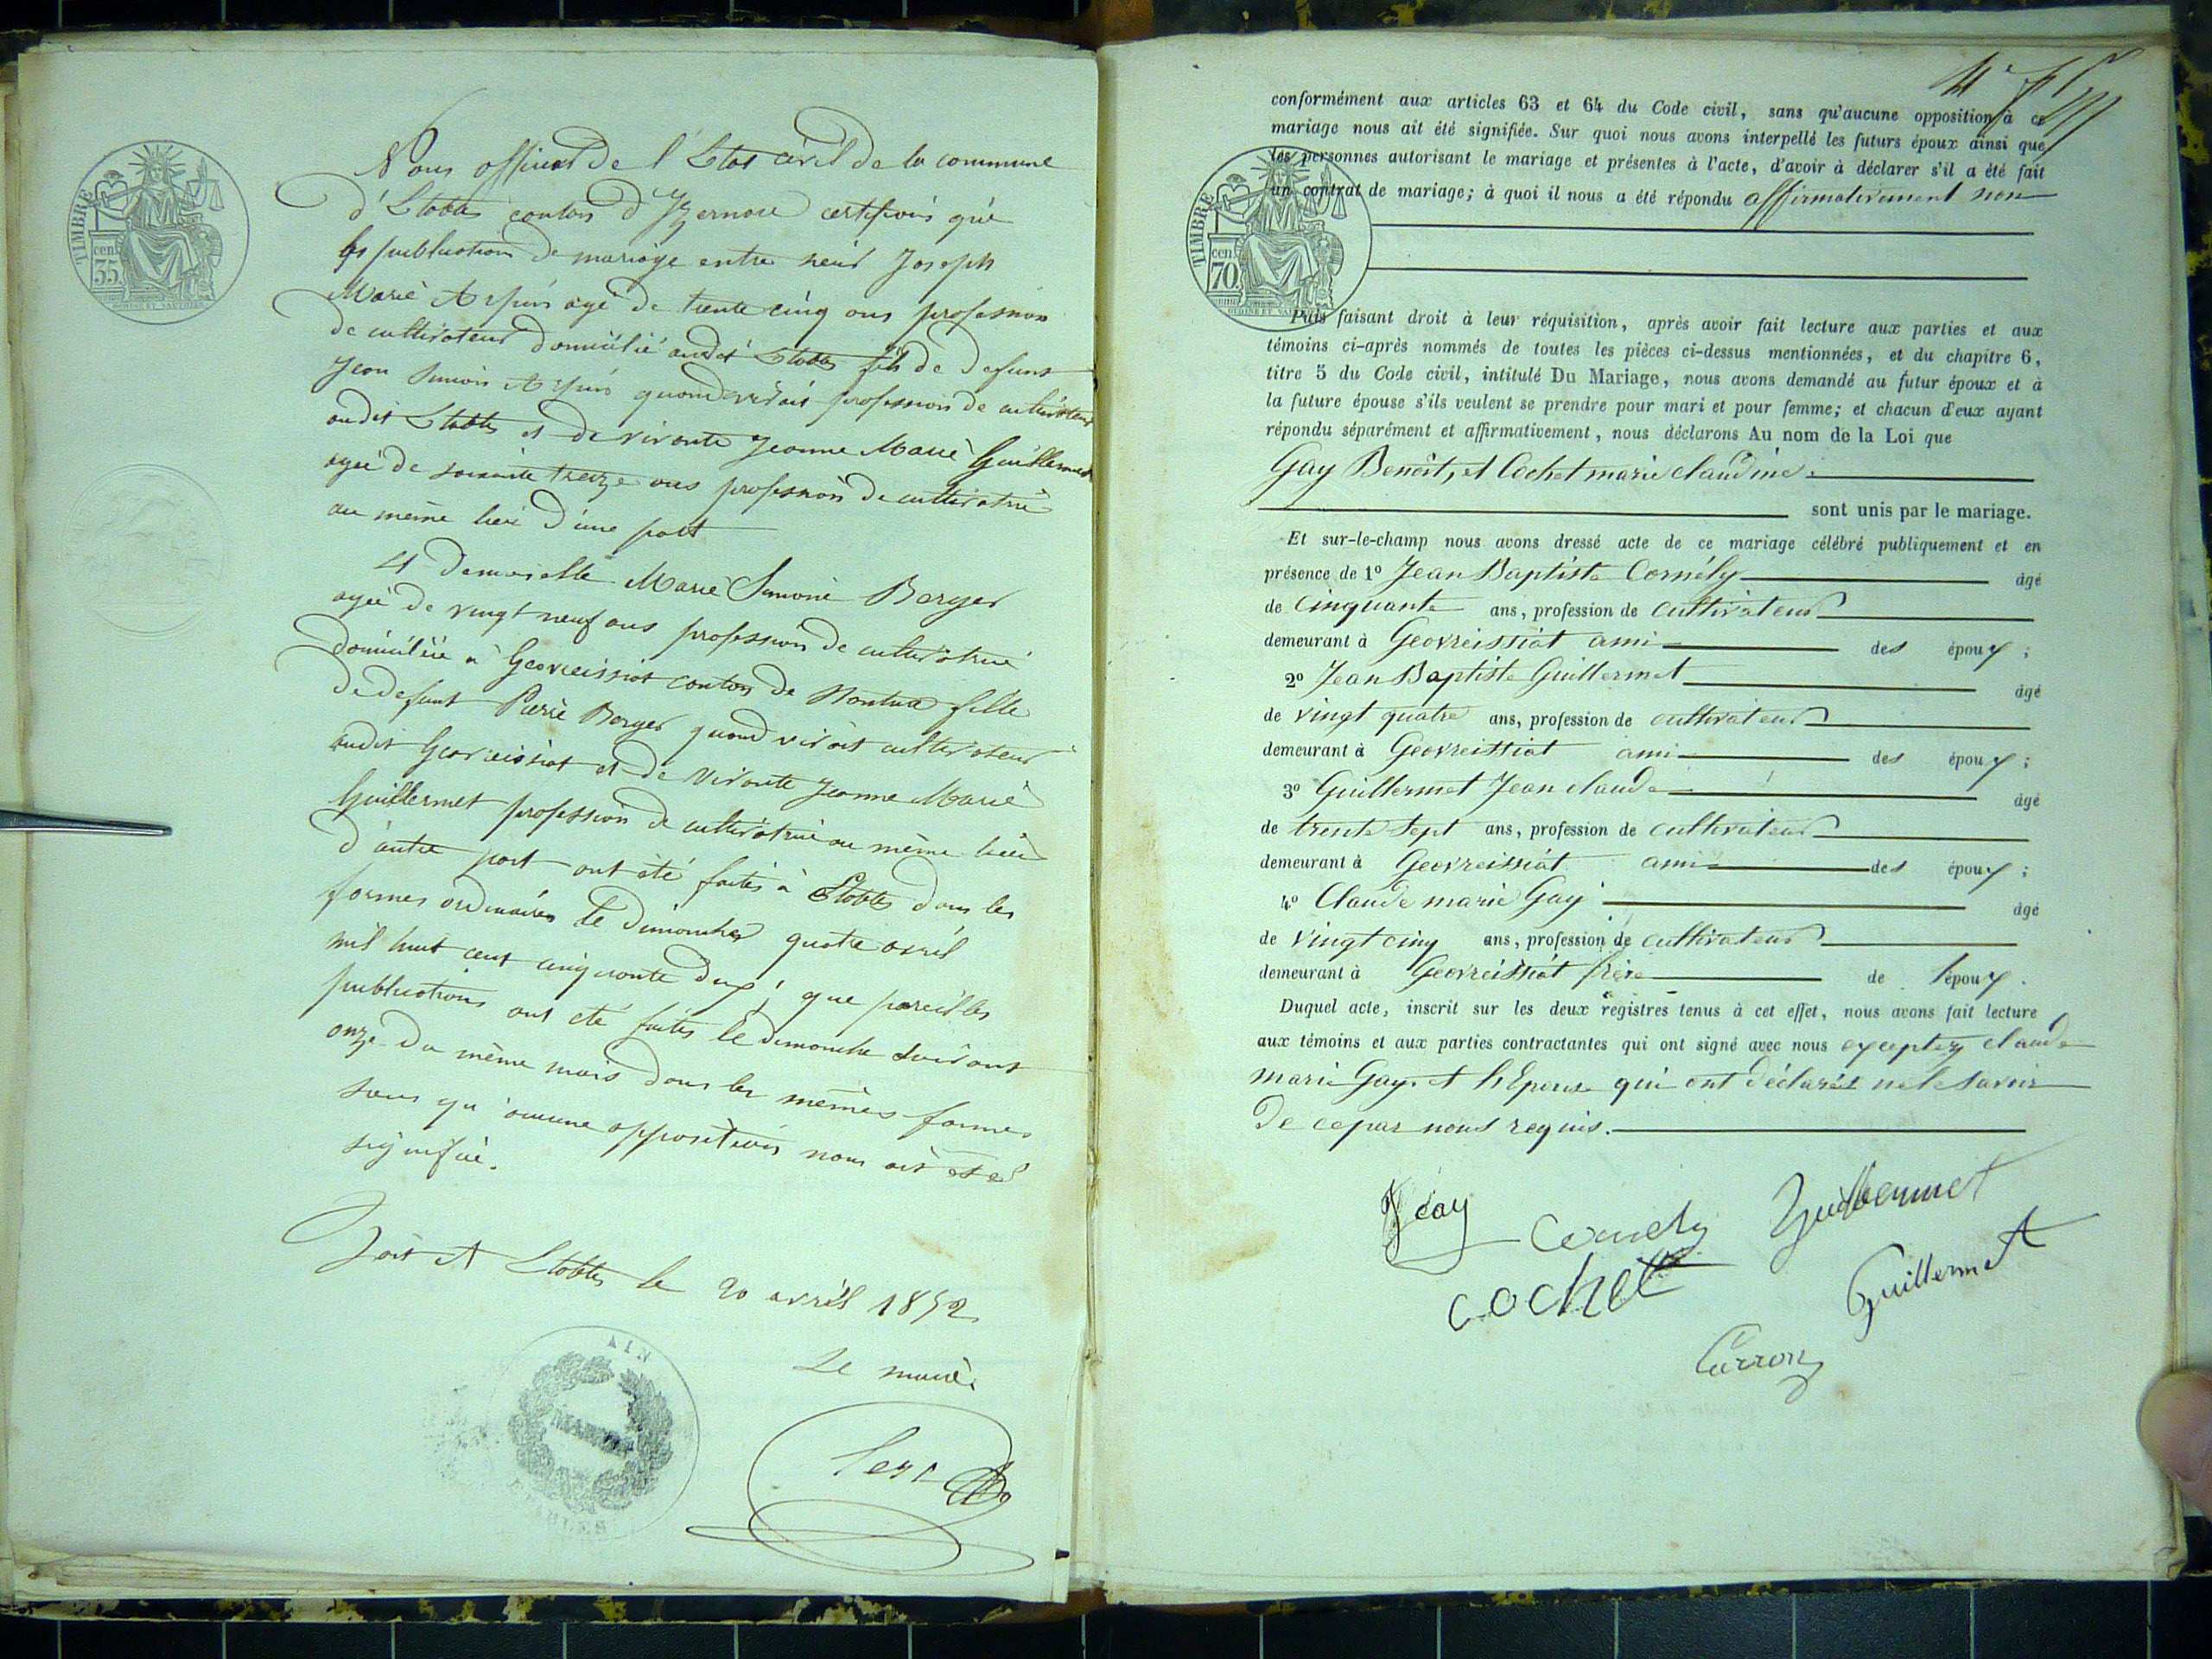 TIMBRE
cen.
35.
Nous officier de l'Etat civil de la commune
d'Etables canton d'Izernore certifions que
les publication de mariage entre sieur Joseph
Marie Arpin agé de trente cinq ans profession
de cultivateur domicilié audit Etables fils de defunt
Jean Simon Arpin quand vivait profession de cultivateur
audit Etables et de vivante Jeanne Marie Guillermet
agée de soixante treize ans profession de cultivatrice
au même lieu d'une part
et demoiselle Marie Simone Berger
agée de vingt neuf ans profession de cultivatrice
domiciliée à Geovreissiat canton de Nantua fille
de defunt Pierre Berger quand vivait cultivateur
audit Geovreissiat et de vivante Jeanne Marie
Guillermet profession de cultivatrice au même lieu
d'autre part ont été faites à Etables dans les
formes ordinaires le dimanche quatre avril
mil huit cent cinquante deux; que pareilles
publications ont été faites le dimanche suivant
onze du même mois dans les mêmes formes
sans qu'aucune opposition nous ait été
signifié.
Fait A Etables le 20 avril 1852
Le maire
AIN
MAIRIE
ETABLES
conformément aux articles 63 et 64 du Code civil, sans qu'aucune opposition à ce
mariage nous ait été signifiée. Sur quoi nous avons interpellé les futurs époux ainsi que
les personnes autorisant le mariage et présentes à l'acte, d'avoir à déclarer s'il a été fait
un contrat de mariage; à quoi il nous a été répondu affirmativement non
TIMBRE
cen.
70.
Puis faisant droit à leur réquisition, après avoir fait lecture aux parties et aux
témoins ci-après nommés de toutes les pièces ci-dessus mentionnées, et du chapitre 6,
titre 5 du Code civil, intitulé Du Mariage, nous avons demandé au futur époux et à
la future épouse s'ils veulent se prendre pour mari et pour femme; et chacun d'eux ayant
répondu séparément et affirmativement, nous déclarons Au nom de la Loi que
Gay Benoît, et Cochet marie claudine
sont unis par le mariage.
Et sur-le-champ nous avons dressé acte de ce mariage célébré publiquement et en
présence de 1º Jean Baptiste Cornély âgé
de cinquante ans, profession de cultivateur
demeurant à Geovreissiat ami des époux;
2º Jean Baptiste Guillermet âgé
de vingt quatre ans, profession de cultivateur
demeurant à Geovreissiat ami des époux;
3º Guillermet Jean claude âgé
de trente sept ans, profession de cultivateur
demeurant à Geovreissiat ami des époux;
4º Claude marie Gay âgé
de vingt cinq ans, profession de cultivateur
demeurant à Geovreissiat frère de l'époux.
Duquel acte, inscrit sur les deux registres tenus à cet effet, nous avons fait lecture
aux témoins et aux parties contractantes qui ont signé avec nous exceptez claude
marie Gay et l'Epouse qui ont déclarés ne le savoir
de ce par nous requis.
Gay
Cornely
Guillermet
cochet
Guillermet
Carron